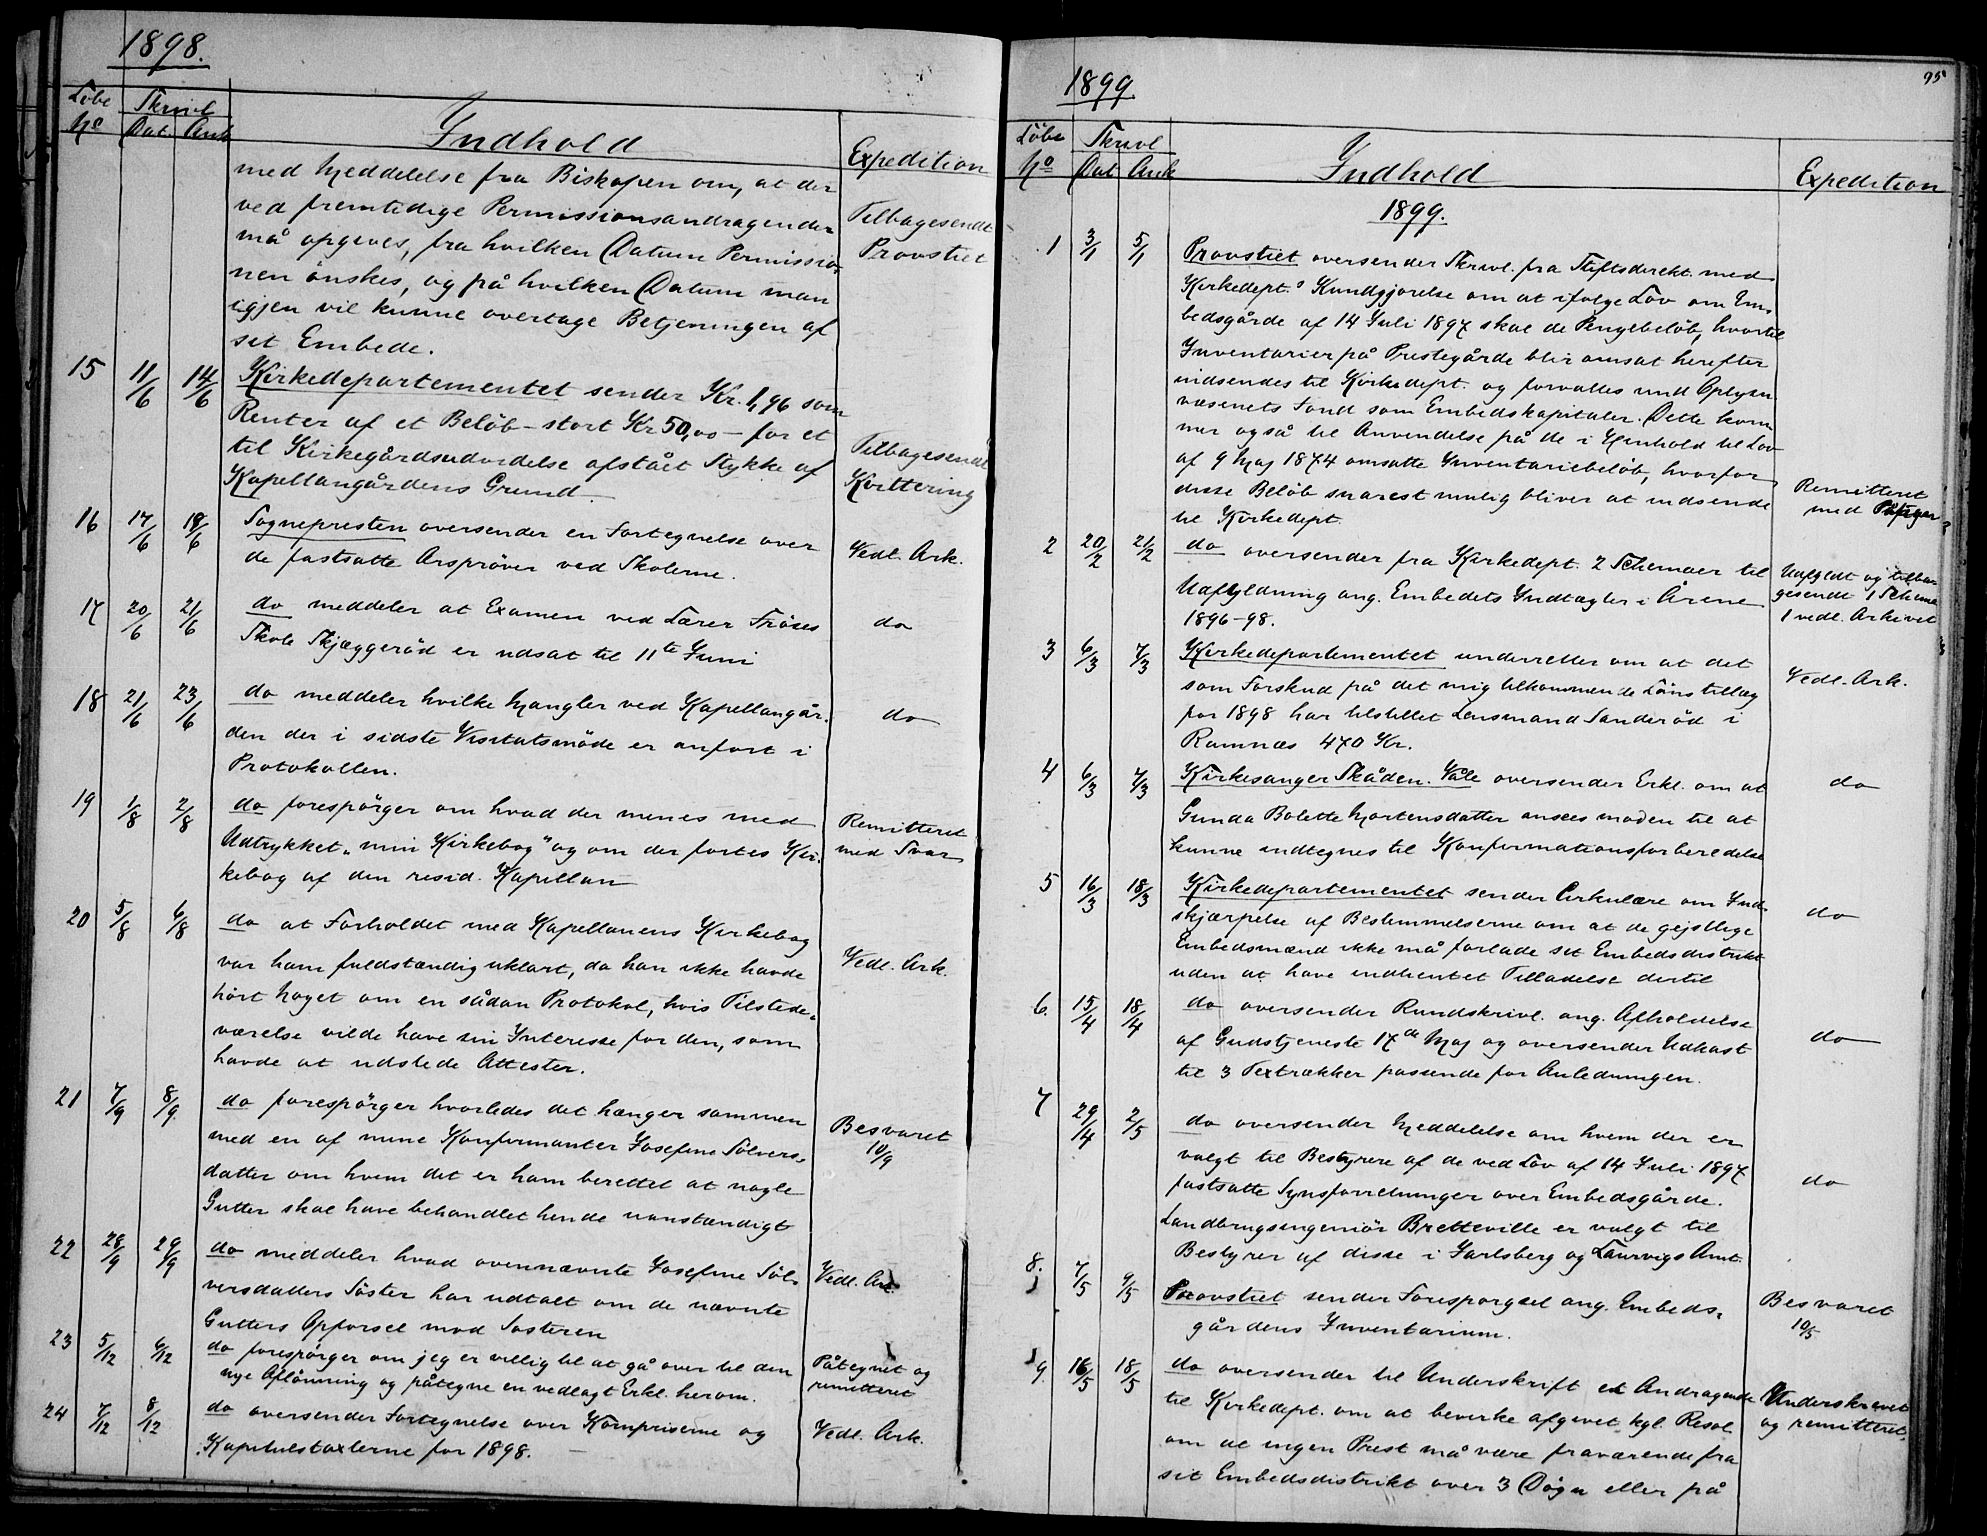 1898.
Löbe No
Skrivl
Dat. Ank
Indhold
Expedition
med Meddelelse fra Biskopen om, at der
ved fremtidige Permissionsandragender
må opgives, fra hvilken Datum Permissio-
nen önskes, og på hvilken Datum man
igjen vil kunne overtage Betjeningen af
sit Embede.
Tilbagesendt
Provstiet
15 11/6 14/6 Kirkedepartementet sender Kr. 1,96 som
Renter af et Beløb - stort Kr 50,00 - for et
til Kirkegårdsudvidelse afstået Stykke af
Kapellangårdens Grund.
Tilbagesendt
Kvittering
16 17/6 18/6 Sognepresten oversender en Fortegnelse over
de fastsatte Årsprøver ved Skolerne.
Vedl. Ark.
17 20/6 21/6 do meddeler at Examen ved Lærer Fröses
Skole Skjæggeröd er udsat til 11te Juni
do
18 21/6 23/6 do meddeler hvilke Mangler ved Kapellangår-
den der i sidste Visitatsmöde er anfört i
Protokollen.
do
19 1/8 2/8 do forespörger om hvad der menes med
Udtrykket "min Kirkebog" og om der föres Kir-
kebog af den resid. Kapellan
Remitteret
med Svar
20 5/8 6/8 do at Forholdet med Kapellanens Kirkebog
var ham fuldstændig uklart, da han ikke havde
hört noget om en sådan Protokol, hvis Tilstede-
værelse vilde have sin Interesse for den, som
havde at udstede Attester.
Vedl. Ark.
21 7/9 8/9 do forespörger hvorledes det hænger sammen
med en af mine Konfirmanter Josefine Sölvers-
datter om hvem det er ham berettet at nogle
Gutter skal have behandlet hende uanstændigt
Besvaret
10/9
22 28/9 29/9 do meddeler hvad ovennævnte Josefine Söl-
versdatters Söster har udtalt om de nævnte
Gutters Opförsel mod Sösteren
Vedl. Ark.
23 5/12 6/12 do forespörger om jeg er villig til at gå over til den
nye Aflönning og påtegne en vedlagt Erkl. herom.
Påtegnet og
remitteret
24 7/12 8/12 do oversender Fortegnelse over Kornpriserne og
Kapitulstaxterne for 1898.
Vedl. Ark.
95
1899
Löbe No
Skrivl
Dat Ank
Indhold
Expedition
1899.
1 3/1 5/1 Provstiet oversender Skrivl. fra Stiftsdirekt. med
Kirkedept.s Kundgjörelse om at ifölge Lov om Em-
bedsgårde af 14 Juli 1897 skal de Pengebelöb, hvortil
Inventarier på Prestegårde blir omsat herefter
indsendes til Kirkedept. og forvaltes und Oplysn.
væsenets Fond som Embedskapitaler. Dette kom-
mer også til Anvendelse på de i Henhold til Lov
af 9 Maj 1874 omsatte Inventariebelöb, hvorfor
disse Belöb snarest mulig bliver at indsende
til Kirkedept.
Remitteret
med
2 20/2 21/2 do oversender fra Kirkedept. 2 Schemaer til
Udfyldning ang. Embedets Indtægter i Årene
1896-98.
Udfyldt og tilba-
gesendt 1 Schema
1 vedl. Arkivet
3 6/3 7/3 Kirkedepartementet underretter om at det
som Forskud på det mig tilkommende Lönstillæg
for 1898 har tilstillet Lensmand Sanderöd i
Ramnæs 470 Kr.
Vedl. Ark.
4 6/3 7/3 Kirkesanger Skåden. Våle oversender Erkl. om at
Gunda Bolette Mortensdatter ansees moden til at
kunne indtegnes til Konfirmationsforberedelse
do
5 16/3 18/3 Kirkedepartementet sender Cirkulære om Ind-
skjærpelse af Bestemmelserne om at de gejstlige
Embedsmænd ikke må forlade sit Embedsdistrikt
uden at have indhentet Tilladelse dertil
do
6. 15/4 18/4 do oversender Rundskrivl. ang. Afholdelse
af Gudstjeneste 17de Maj og oversender Udkast
til 3 Textrækker passende for Anledningen.
do
7 29/4 2/5 do oversender Meddelelse om hvem der er
valgt til Bestyrere af de ved Lov af 14 Juli 1897
fastsatte Synsforretninger over Embedsgårde.
Landbrugsingeniör Bretteville er valgt til
Bestyrer af disse i Jarlsberg og Laurvigs Amt.
do
8. 7/5 9/5 Provstiet sender Forespörgsel ang. Embeds-
gårdens Inventarium.
Besvaret
10/5
9. 16/5 18/5 do oversender til Underskrift et Andragende
til Kirkedept. om at bevirke afgivet kgl. Resol.
om at ingen Prest må være fraværende fra
sit Embedsdistrikt over 3 Dögn eller på
Underskrevet
og remitteret.